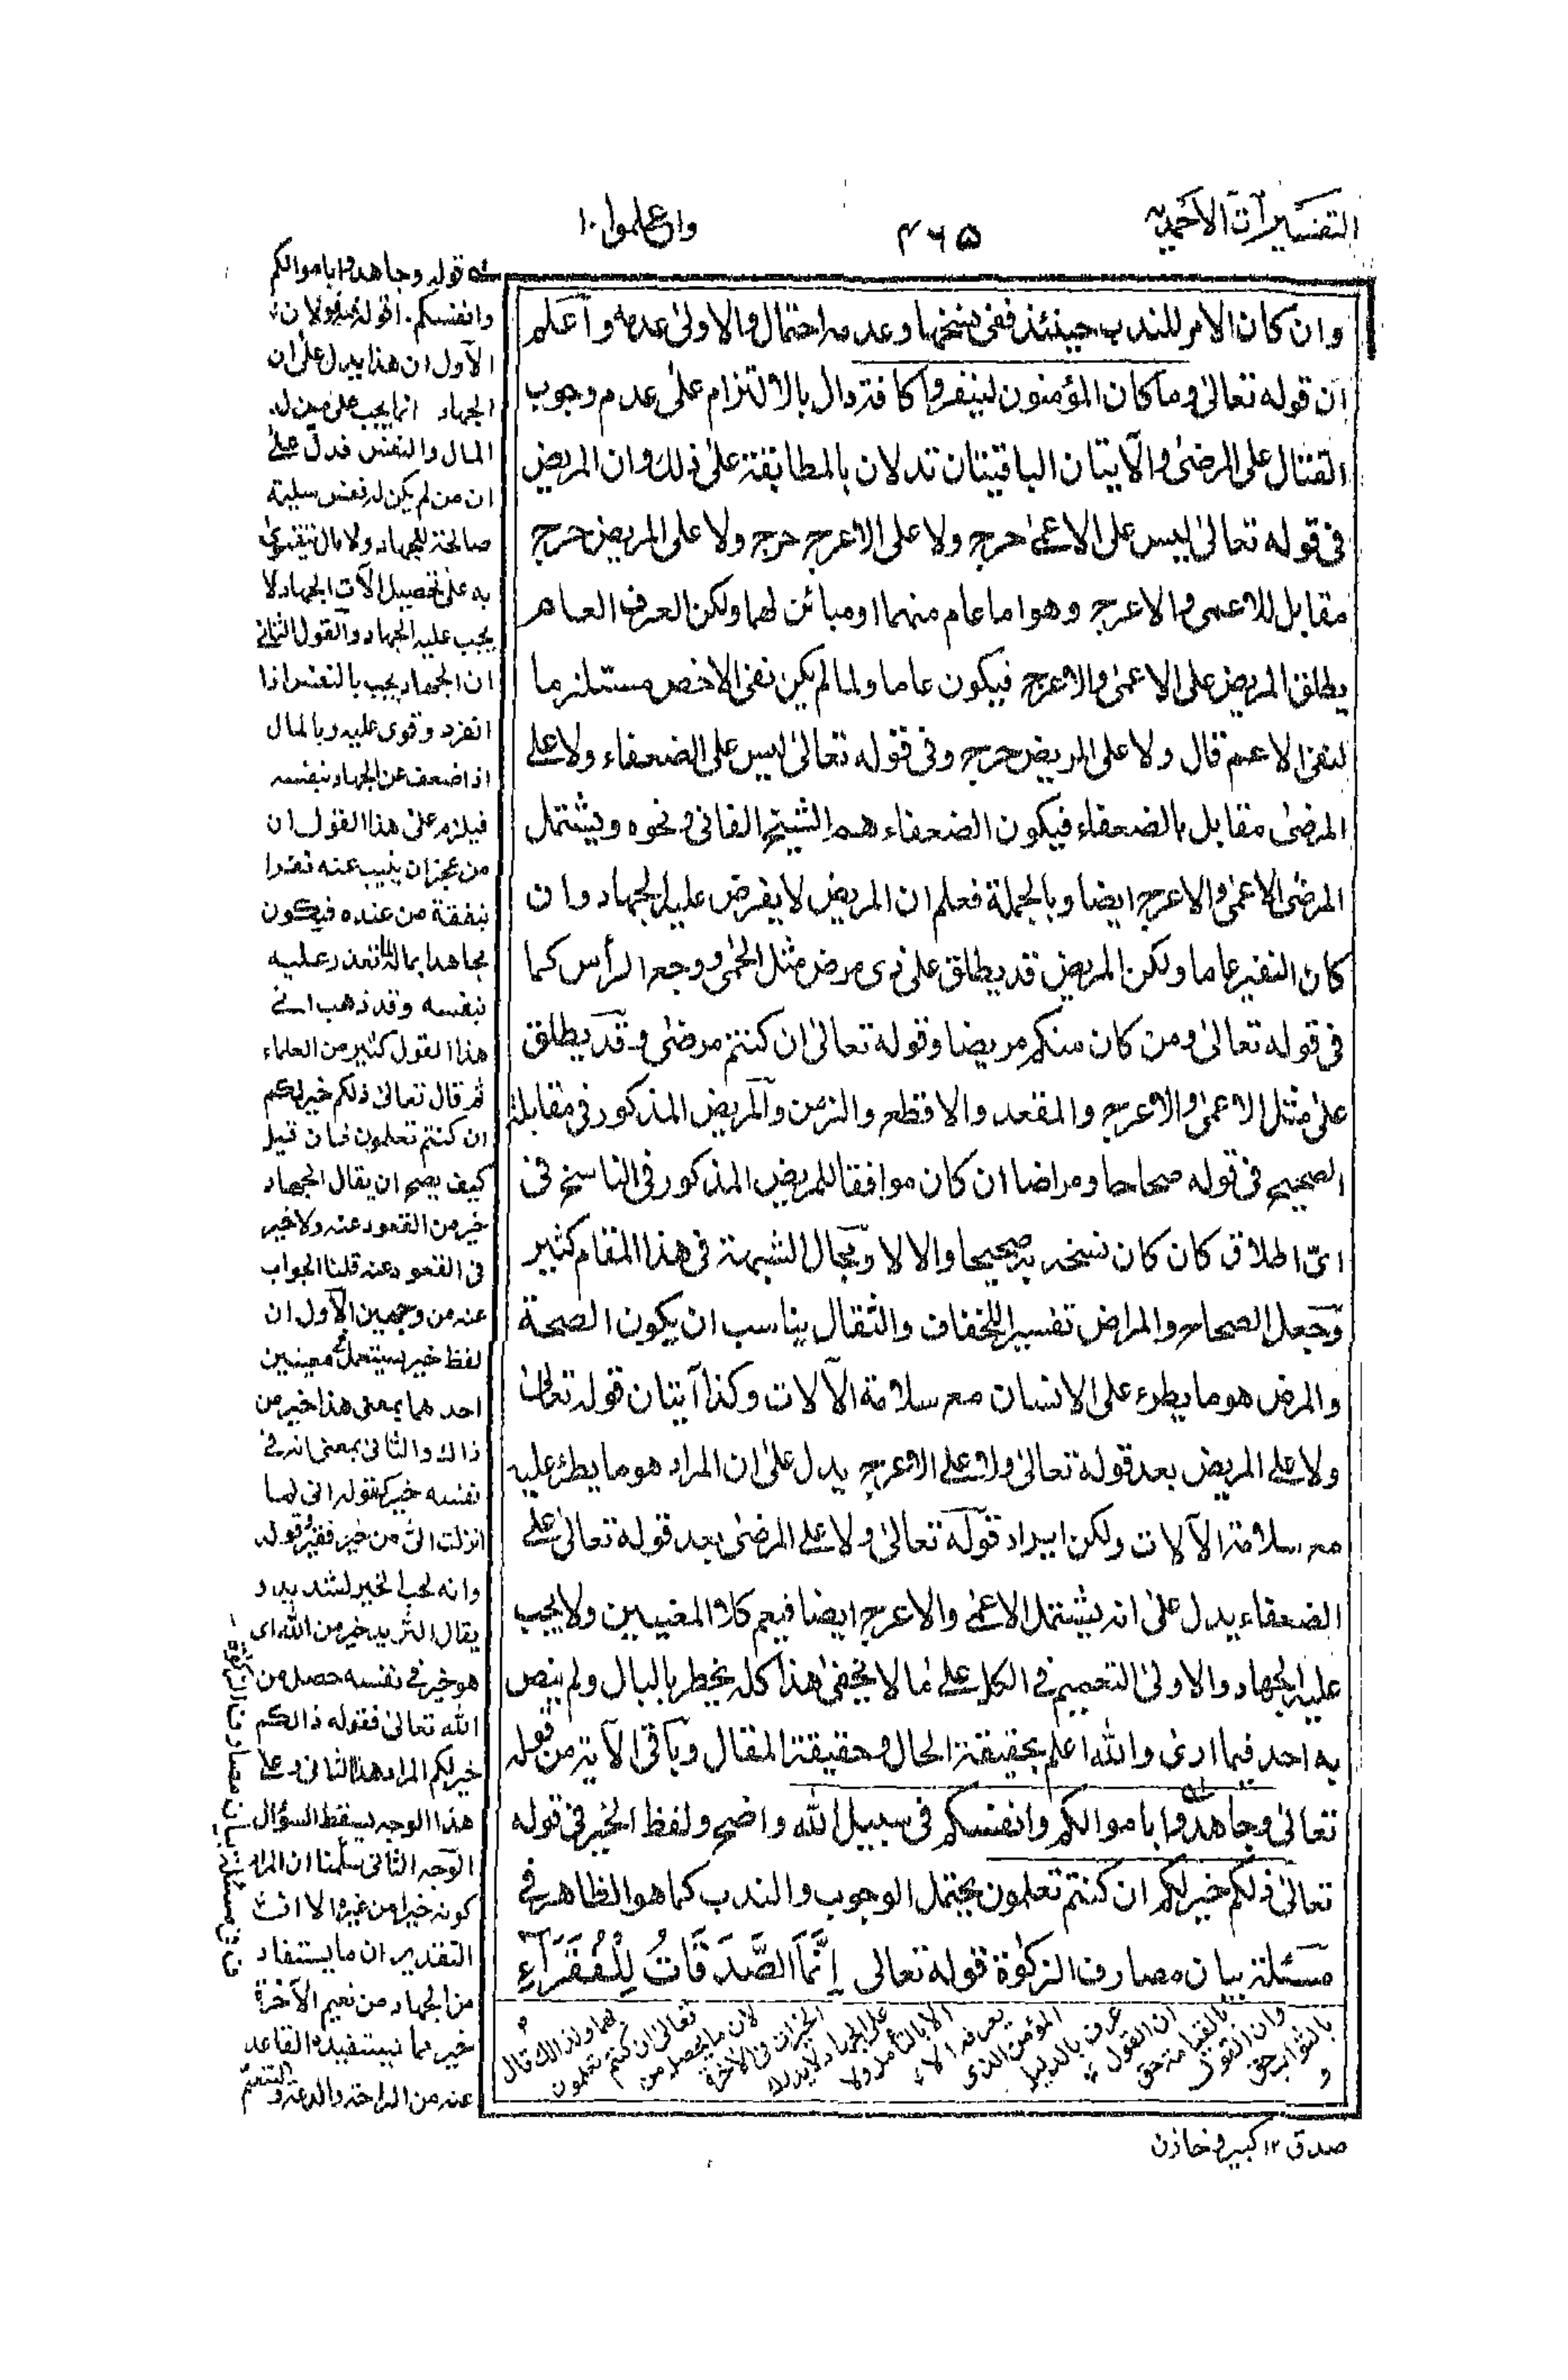 التفسيرات الأحمدية
۴۶۵
واعلموا ۱۰
وان كان الامر للندب حينئذ ففى نسخها وعدمه احتمال والاولىٰ عدمه وآعلم
ان قوله تعالىٰ وما كان المؤمنون لينفروا كافة دال بالالتزام علىٰ عدم وجوب
القتال على المرضىٰ والآيتان الباقيتان تدلان بالمطابقة علىٰ ذلك وان المريض
فى قوله تعالىٰ ليس على الاعمىٰ حرج ولا على الاعرج حرج ولا على المريض حرج
مقابل للاعمى والاعرج وهو اما عام منهما او مبائن لهما ولكن العرف العام
يطلق المريض على الاعمىٰ والاعرج فيكون عاما ولما لم يكن نفى الاخص مستلزما
لنفى الاعم قال ولا على المريض حرج وفى قوله تعالىٰ ليس على الضعفاء ولا على
المرضىٰ مقابل بالضعفاء فيكون الضعفاء هم الشيخ الفانى ونحوه ويشتمل
المرضىٰ الاعمىٰ والاعرج ايضا وبالجملة فعلم ان المريض لا يفرض عليه الجهاد وان
كان النفير عاما ولكن المريض قد يطلق على ذى مرض مثل الحمىٰ ووجع الرأس كما
فى قوله تعالىٰ ومن كان منكم مريضا وقوله تعالىٰ ان كنتم مرضىٰ وقد يطلق
علىٰ مثل الاعمىٰ والاعرج والمقعد والاقطع والزمن وآلمريض المذكور فى مقابلة
الصحيح فى قوله صحاحا ومراضا ان كان موافقا للمريض المذكور فى الناسخ فى
اىّ اطلاق كان كان نسخه به صحيحا والا لا ومجال الشبهة فى هذا المقام كثير
وجعل الصحاح والمراض تفسيرا للخفاف والثقال يناسب ان يكون الصحة
والمرض هو ما يطرء على الانسان مع سلامة الآلات وكذا آيتان قوله تعالىٰ
ولا على المريض بعد قوله تعالىٰ ولا على الاعرج يدل علىٰ ان المراد هو ما يطرء عليه
مع سلامة الآلات ولكن ايراد قوله تعالىٰ ولا على المرضىٰ بعد قوله تعالىٰ على
الضعفاء يدل علىٰ انه يشتمل الاعمىٰ والاعرج ايضا فيعم كلا المعنيين ولا يجب
عليه الجهاد والاولىٰ التعميم فى الكل علىٰ ما لا يخفىٰ هذا كله يخطر بالبال ولم ينص
به احد فيما ارى والله اعلم بحقيقة الحال وحقيقة المقال وباقى الآية من قوله
تعالىٰ وجاهدوا باموالكم وانفسكم فى سبيل الله واضح ولفظ الخير فى قوله
تعالىٰ ذلكم خير لكم ان كنتم تعلمون يحتمل الوجوب والندب كما هو الظاهر فى
مسئلة بيان مصارف الزكوٰة قوله تعالى إِنَّمَا الصَّدَقَاتُ لِلْفُقَرَآءِ
قوله وجاهدوا باموالكم
وانفسكم. اقول فيه قولان
الآول ان هذا يدل على ان
الجهاد انما يجب على من له
المال والنفس فدل على
ان من لم يكن له نفس سليمة
صالحة للجهاد ولا مال يتقوى
به على تحصيل آلات الجهاد لا
يجب عليه الجهاد وآلقول الثانى
ان الجهاد يجب بالنفس اذا
انفرد وقوى عليه وبالمال
اذا ضعف عن الجهاد بنفسه
فيلزم على هذا القول ان
من عجز ان ينيب عنه نفرا
بنفقة من عنده فيكون
مجاهدا بماله لما تعذر عليه
بنفسه وقد ذهب الى
هذا القول كثير من العلماء
ثم قال تعالىٰ ذلكم خير لكم
ان كنتم تعلمون فان قيل
كيف يصح ان يقال الجهاد
خير من القعود عنه ولا خير
فى القعود عنه قلنا الجواب
عنه من وجهين الآول ان
لفظ خير يستعمل بمعنيين
احدهما بمعنى هذا خير من
ذاك والثانى بمعنى انه فى
نفسه خير كقوله انى لما
انزلت الىّ من خير فقير وقوله
وانه لحب الخير لشديد و
يقال الثريد خير من الله اى
هو خير فى نفسه حصل من
الله تعالىٰ فقوله ذالكم
خير لكم المراد هذا الثانى وعلى
هذا الوجه يسقط السؤال
الوجه الثانى سلمنا ان المراد
كونه خيرا من غيره الا ان
التقدير ان ما يستفاد
من الجهاد من نعيم الآخرة
خير مما يستفيده القاعد
عنه من الراحة والدعة والتنعم
بهما ولذالك قال
تعالىٰ ان كنتم تعلمون
لان ما يحصل من
الخيرات فى الآخرة
على الجهاد لا يدرك
الا بالتأمل ولا
يعرفه الا
المؤمن الذى
عرف بالدليل
ان القول
بالقيامة حق
وان القول
بالثواب حق
و
صدق ۱۲ كبير وخازن
مسئلة بيان مصارف الزكوٰة